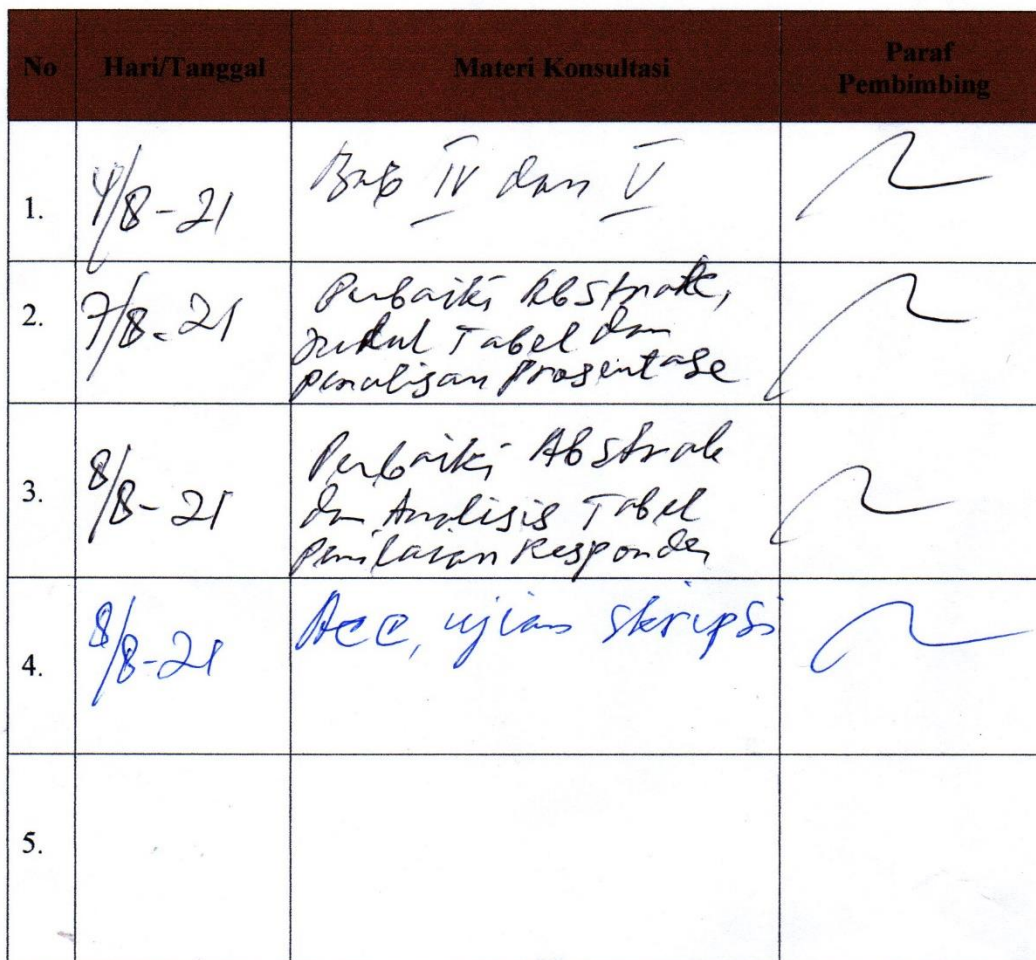 No Hari/Tanggal Materi Konsultasi Paraf
Pembimbing
1. 4/8-21 Bab IV dan V
2. 7/8-21 Perbaiki Abstrak,
Judul Tabel dan
penulisan Prosentase
3. 8/8-21 Perbaiki Abstrak
dan Analisis Tabel
Penilaian Responden
4. 8/8-21 Acc, ujian skripsi
5.